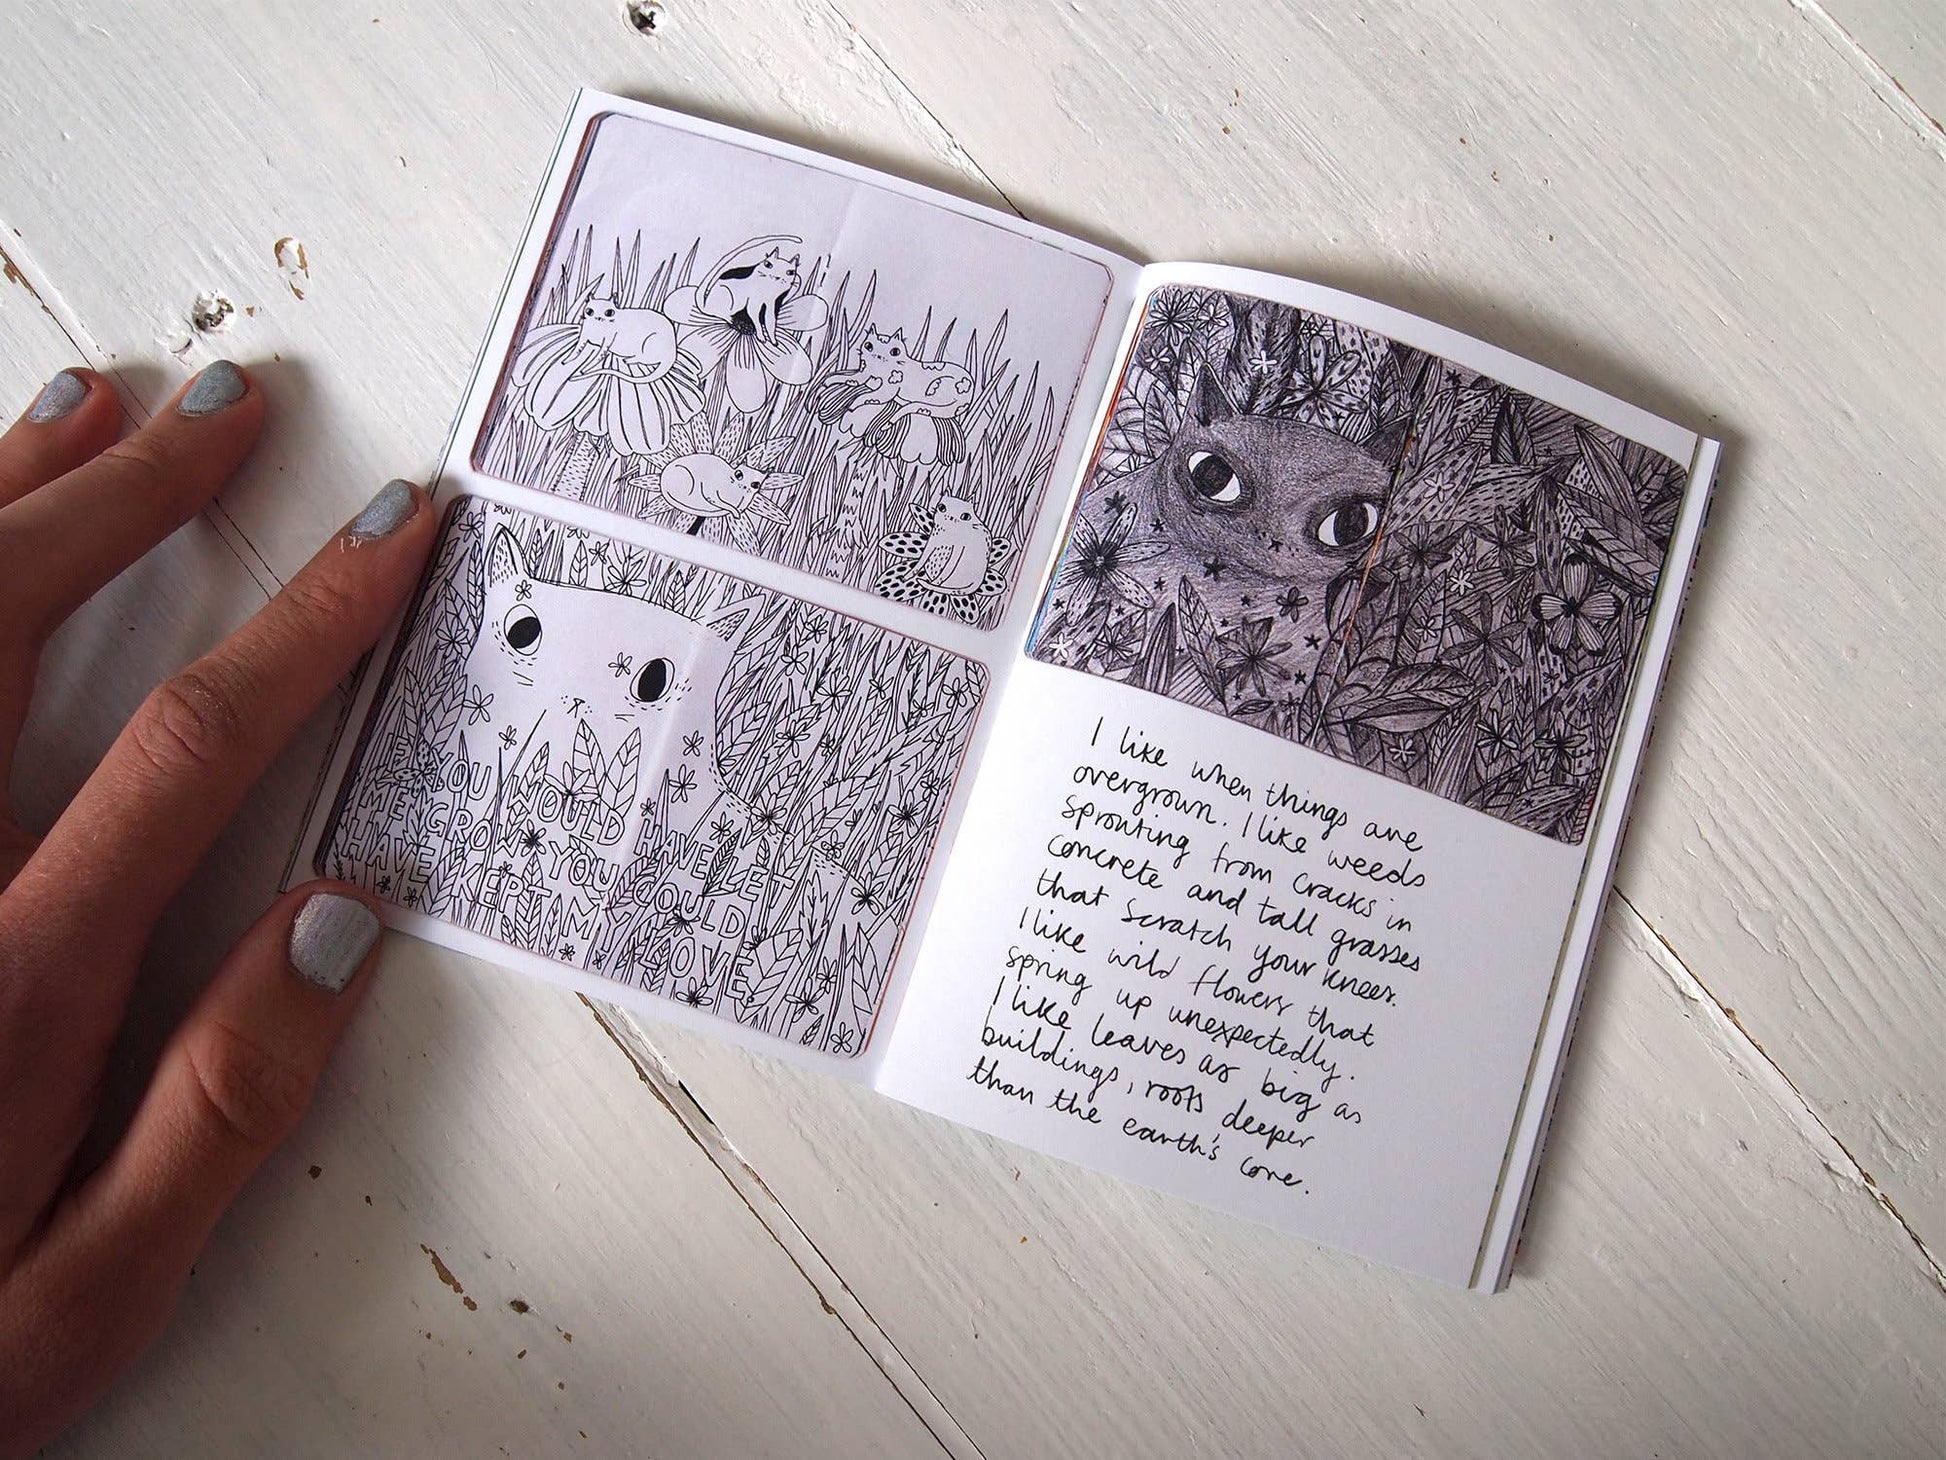 IF YOU WOULD HAVE LET
ME GROW YOU COULD
HAVE KEPT MY LOVE.
I like when things are
overgrown. I like weeds
sprouting from cracks in
concrete and tall grasses
that scratch your knees.
I like wild flowers that
spring up unexpectedly.
I like leaves as big as
buildings, roots deeper
than the earth's core.